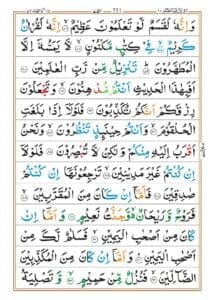 وَاِنَّهٗ لَقَسَمٌ لَّوْ تَعْلَمُوْنَ عَظِيْمٌ ۙ اِنَّهٗ لَقُرْاٰنٌ
كَرِيْمٌ ۙ فِيْ كِتٰبٍ مَّكْنُوْنٍ ۙ لَّا يَمَسُّهٗٓ اِلَّا
الْمُطَهَّرُوْنَ ؕ تَنْزِيْلٌ مِّنْ رَّبِّ الْعٰلَمِيْنَ
اَفَبِهٰذَا الْحَدِيْثِ اَنْتُمْ مُّدْهِنُوْنَ ۙ وَتَجْعَلُوْنَ
رِزْقَكُمْ اَنَّكُمْ تُكَذِّبُوْنَ فَلَوْلَاۤ اِذَا بَلَغَتِ
الْحُلْقُوْمَ ۙ وَاَنْتُمْ حِيْنَئِذٍ تَنْظُرُوْنَ ۙ وَنَحْنُ
اَقْرَبُ اِلَيْهِ مِنْكُمْ وَلٰكِنْ لَّا تُبْصِرُوْنَ فَلَوْلَاۤ اِنْ
كُنْتُمْ غَيْرَ مَدِيْنِيْنَ ۙ تَرْجِعُوْنَهَاۤ اِنْ كُنْتُمْ
صٰدِقِيْنَ فَاَمَّاۤ اِنْ كَانَ مِنَ الْمُقَرَّبِيْنَ ۙ
فَرَوْحٌ وَّرَيْحَانٌ ۙ وَّجَنَّتُ نَعِيْمٍ وَاَمَّاۤ اِنْ
كَانَ مِنْ اَصْحٰبِ الْيَمِيْنِ ۙ فَسَلٰمٌ لَّكَ مِنْ
اَصْحٰبِ الْيَمِيْنِ ؕ وَاَمَّاۤ اِنْ كَانَ مِنَ الْمُكَذِّبِيْنَ
الضَّآلِّيْنَ ۙ فَنُزُلٌ مِّنْ حَمِيْمٍ ۙ وَّتَصْلِيَةُ